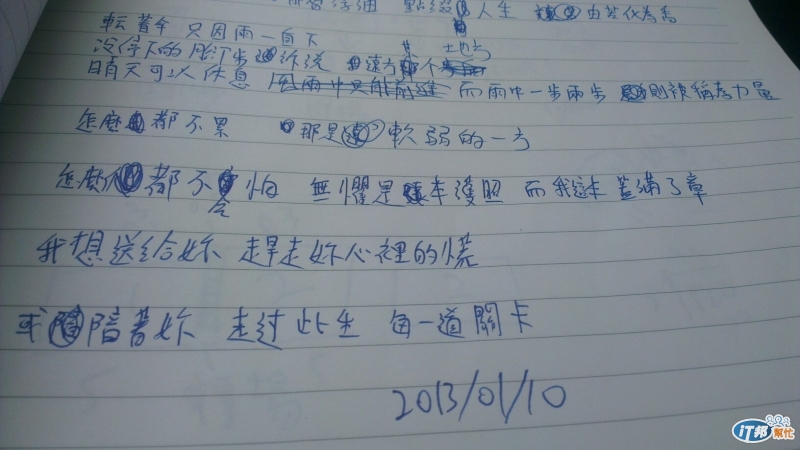 點綴 人生 由苦化為喬
転昔年 只因雨一直下
沒停下的 腳步 訴說 遠方 那個 某 地方
晴天可以休息 風雨中只能前進 而雨中一步兩步 則被稱為力量
怎麼都不累 那是軟弱的一方
怎麼都不會怕 無懼是本護照 而我這本蓋滿了章
我想送給妳 趕走妳心裡的慌
或陪著妳 走过此生 每一道關卡
2013/01/10
iT邦幫忙